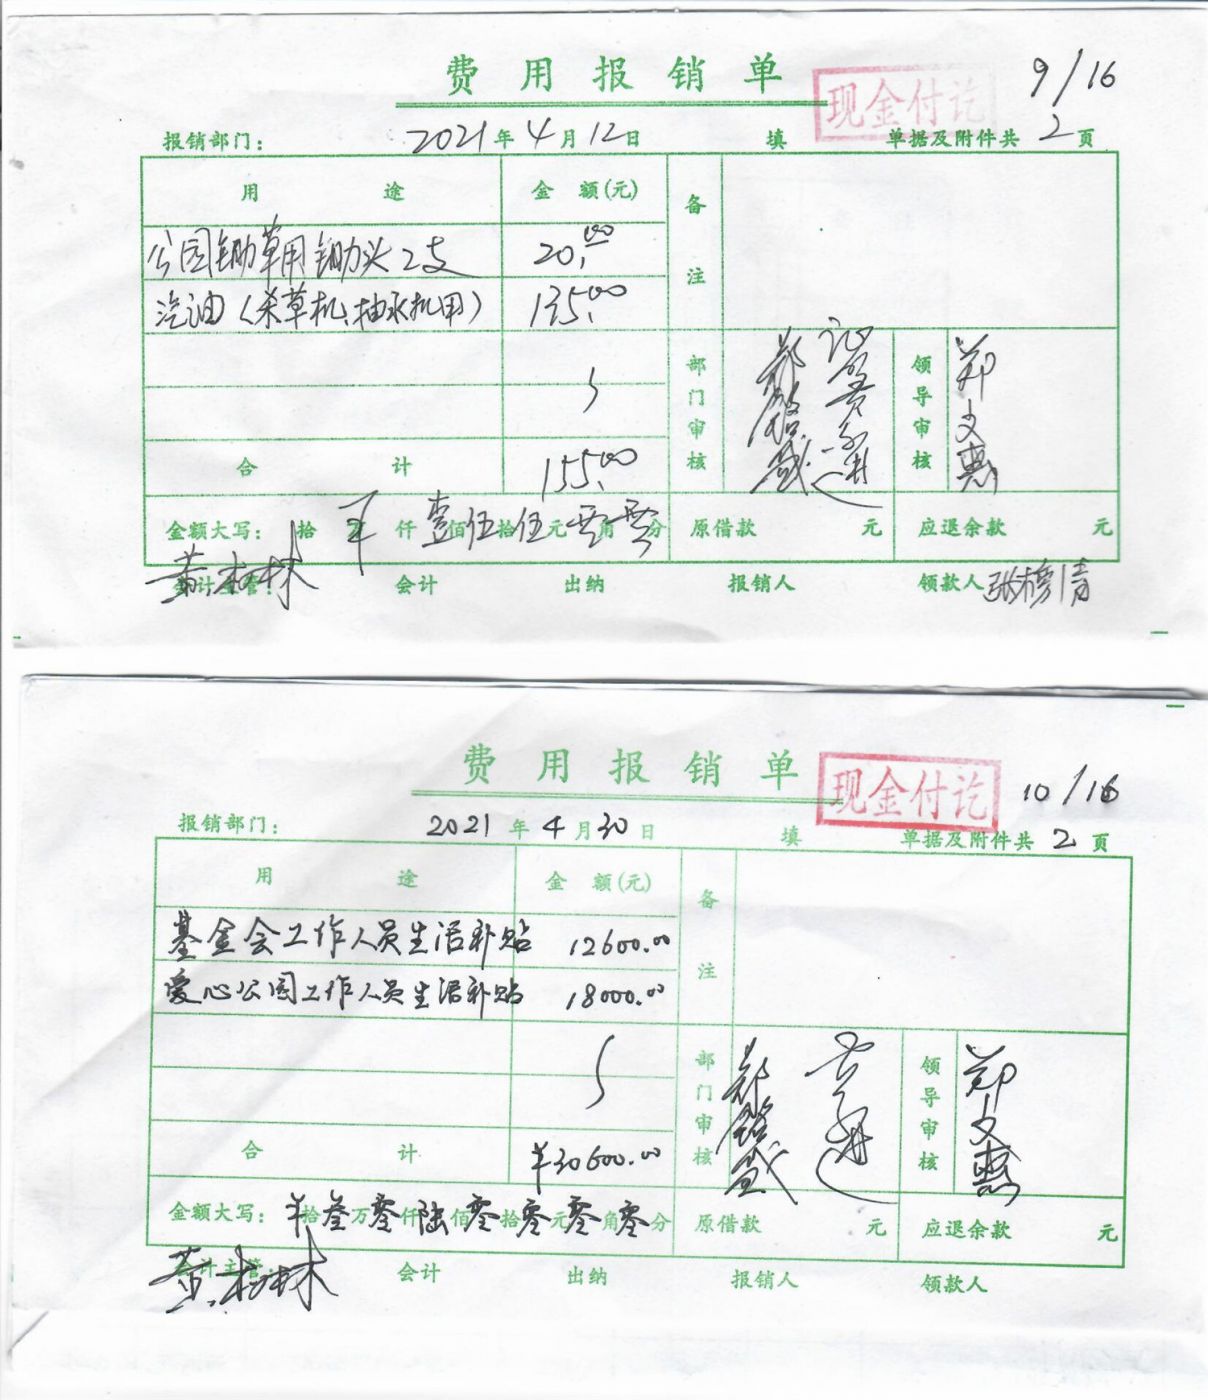 费用报销单
现金付讫
9/16
报销部门： 2021年4月12日 填 单据及附件共2页
用途 金额(元) 备注
公园锄草用锄头2支 20.00
汽油（杀草机、抽水机用） 135.00
部门审核 领导审核 郑文惠
合计 155.00
金额大写： 拾 仟壹佰伍拾伍元零角零分 原借款 元 应退余款 元
黄 林
会计主管： 会计 出纳 报销人 领款人
费用报销单
现金付讫
10/16
报销部门： 2021年4月30日 填 单据及附件共2页
用途 金额(元) 备注
基金会工作人员生活补贴 12600.00
爱心公园工作人员生活补贴 18000.00
部门审核 领导审核 郑文惠
合计 ¥30600.00
金额大写： 拾叁万零仟陆佰零拾零元零角零分 原借款 元 应退余款 元
黄 林
会计主管： 会计 出纳 报销人 领款人